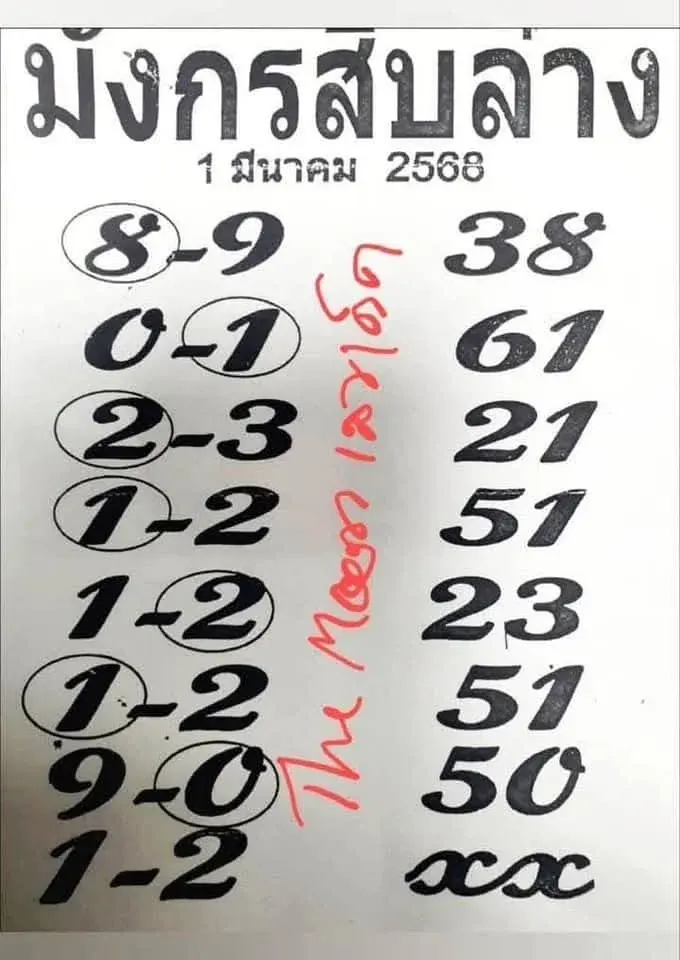 มังกรสิบล่าง
1 มีนาคม 2568
8-9 38
0-1 61
2-3 21
1-2 51
1-2 23
1-2 51
9-0 50
1-2 xx
The Moon